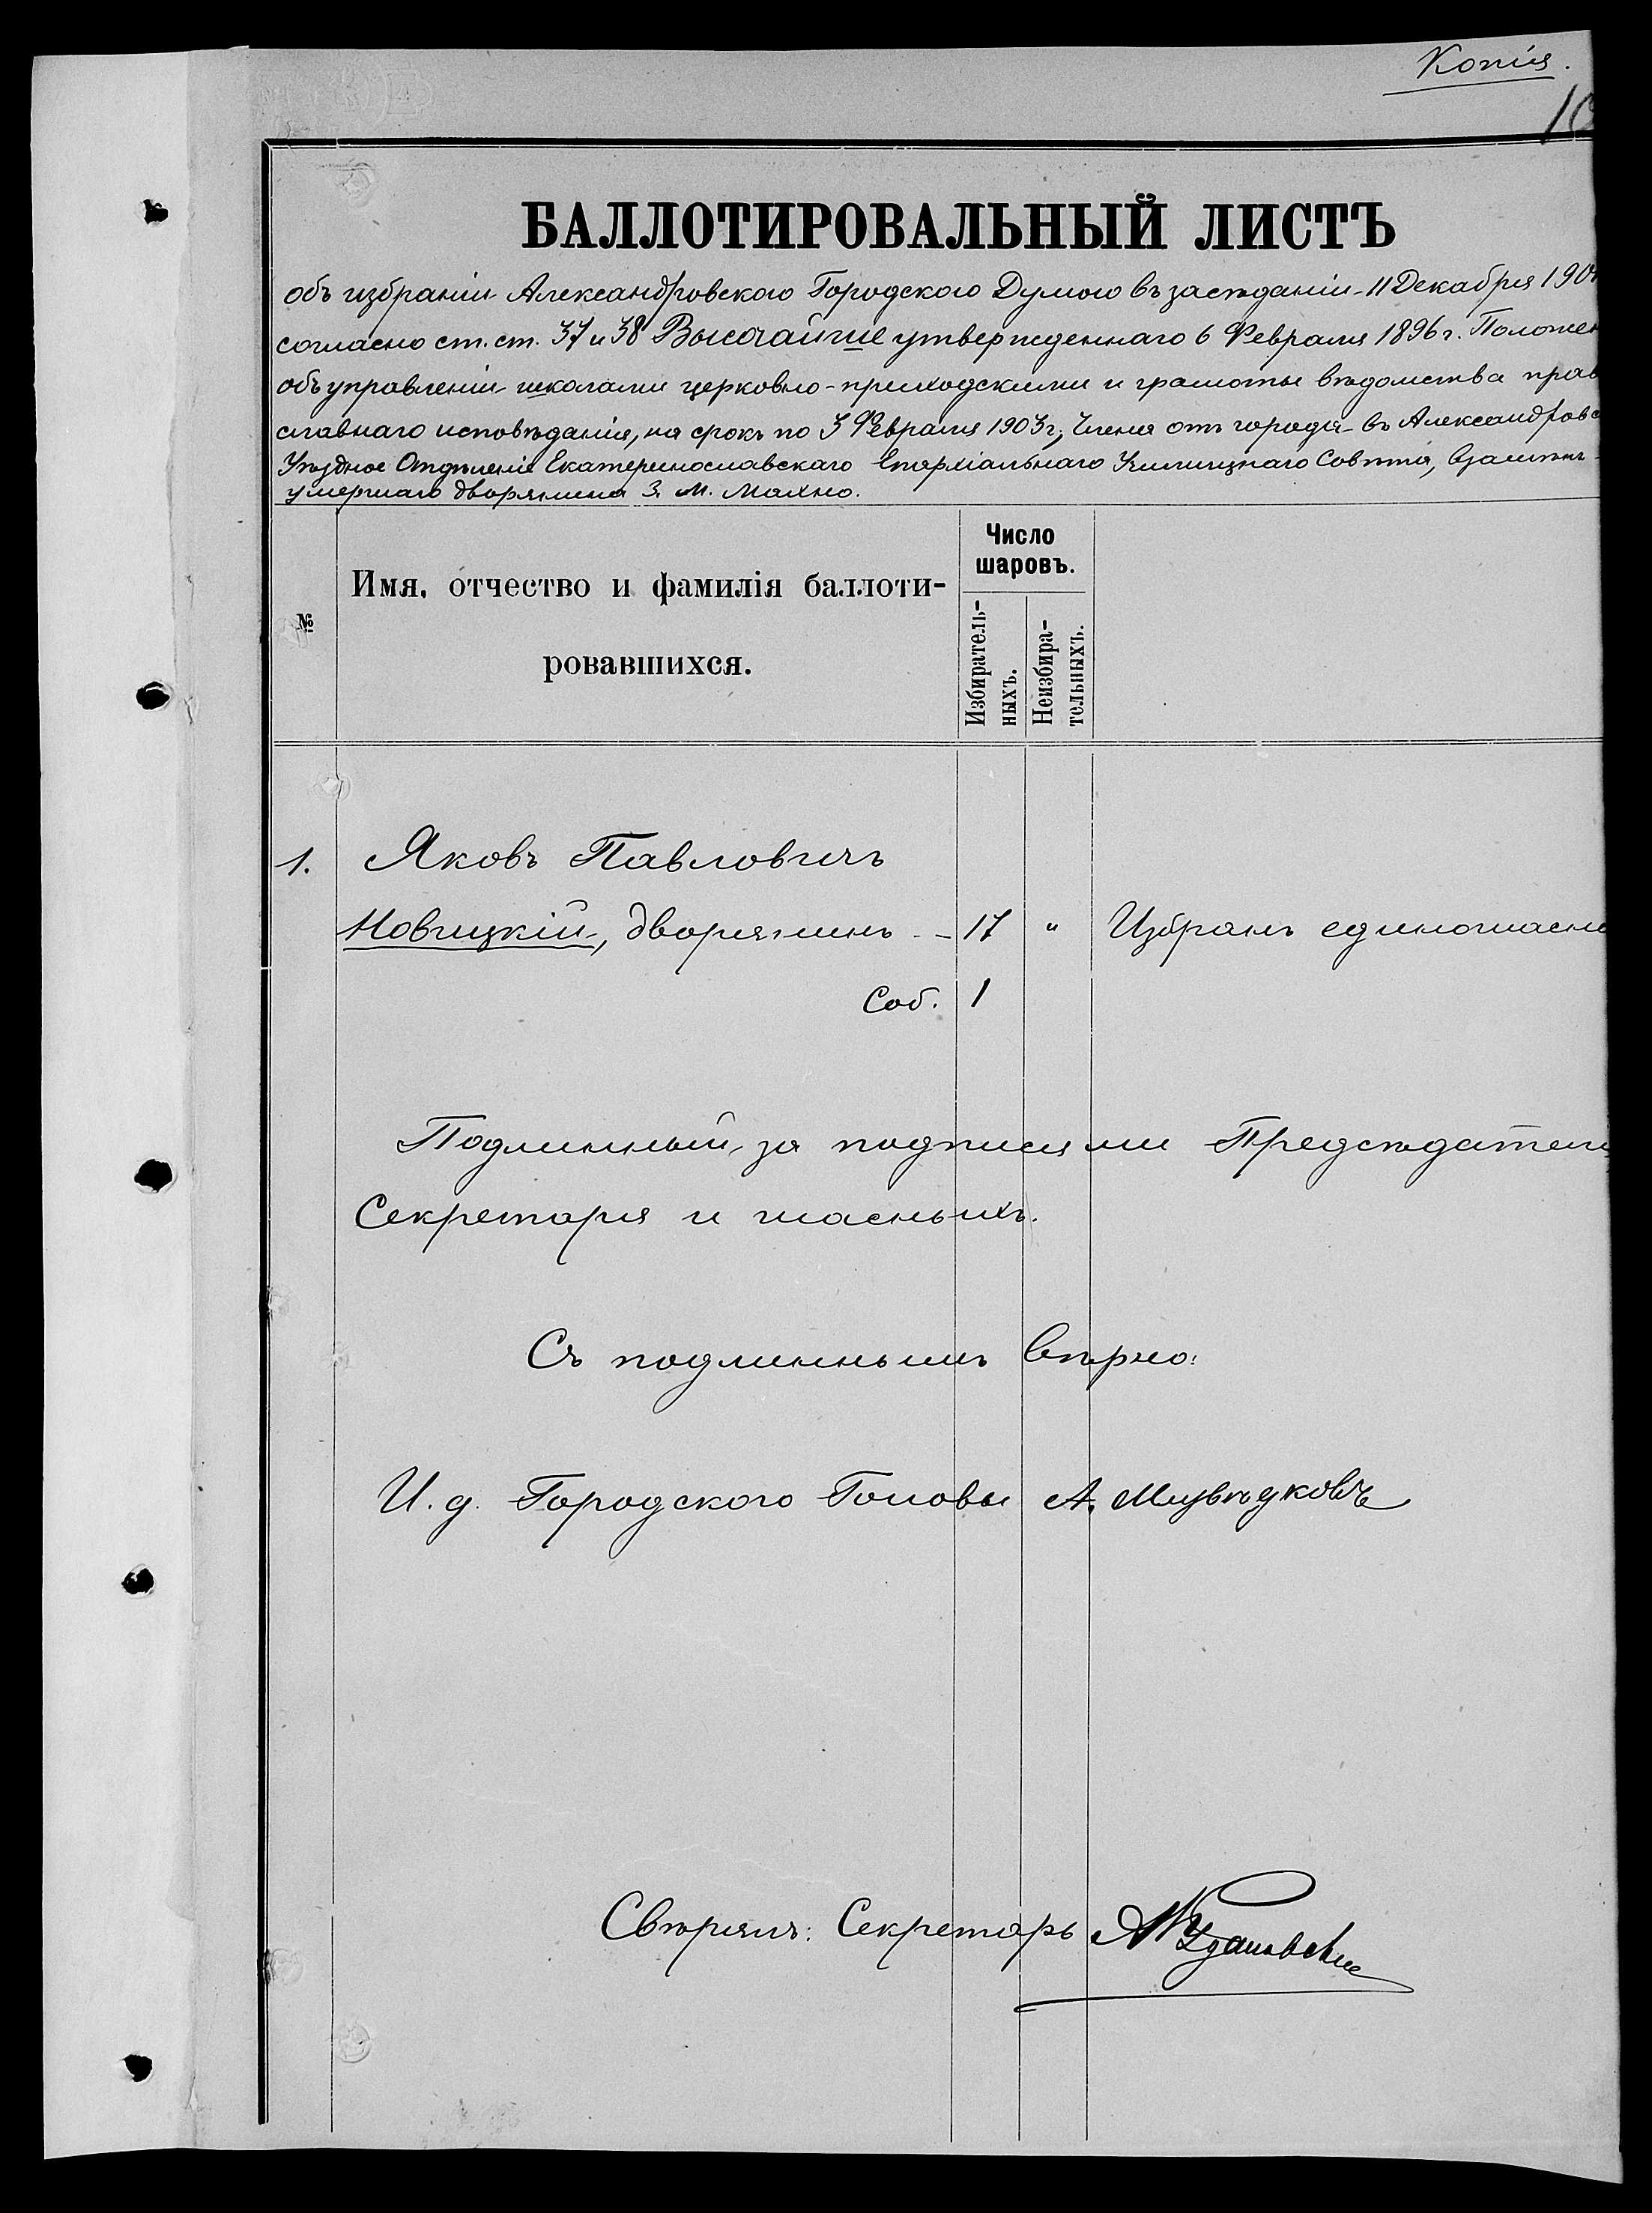 Копія.
10
БАЛЛОТИРОВАЛЬНЫЙ ЛИСТЪ
объ избраніи Александровскою Городскою Думою въ засѣданіи 11 Декабря 190
согласно ст. ст. 37 и 38 Высочайше утвержденнаго 6 Февраля 1896 г. Положен
объ управленіи школами церковно-приходскими и грамоты вѣдомства прав
славнаго исповѣданія, на срокъ по 3 Февраля 1903 г., Члена отъ города въ Александровс
Уѣздное Отдѣленіе Екатеринославскаго Епархіальнаго Училищнаго Совѣта, взамѣнъ
умершаго дворянина З. М. Махно.
№
Имя, отчество и фамилія баллоти-
ровавшихся.
Число
шаровъ.
Избиратель-
ныхъ.
Неизбира-
тельныхъ.
1. Яковъ Павловичъ
Новицкій, дворянинъ - - 17 " Избранъ единогласно
Соб. 1
Подлинный за подписями Предсѣдателя
Секретаря и гласныхъ.
Съ подлиннымъ вѣрно:
И. д. Городского Головы А.
Свѣрялъ: Секретарь